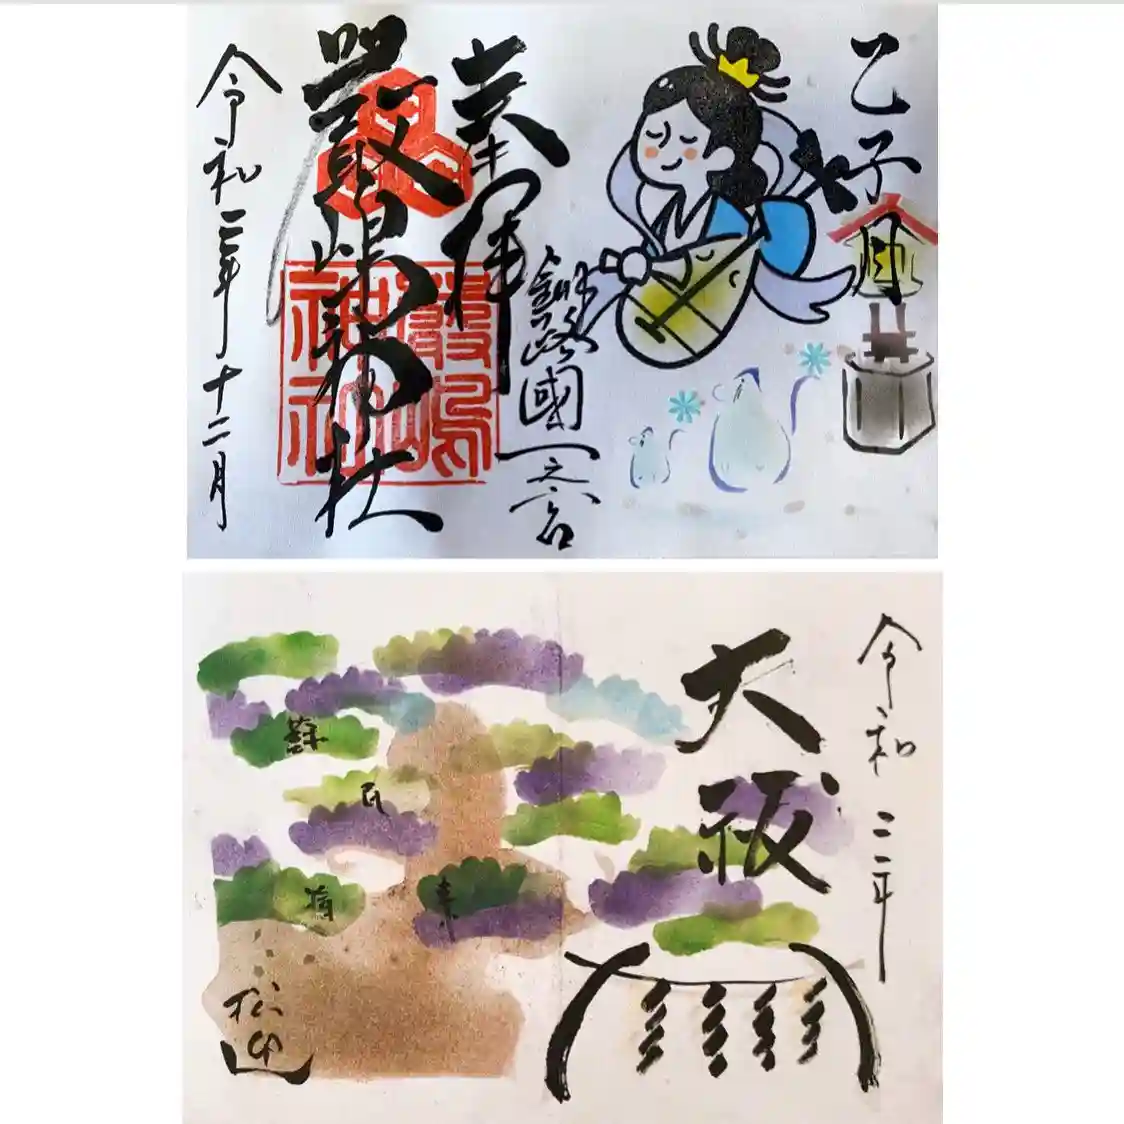 乙子月
釧路國一之宮
奉拝
嚴嶋神社
嚴嶋神社
令和二年十二月
令和二年
大祓
蘇
民
将
来
松迎